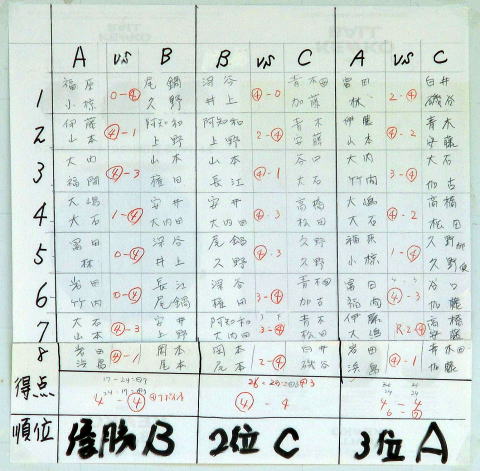 A VS B B VS C A VS C
1 福原 0-④ 尾鍋 深谷 ④-0 青木田 冨田 2-④ 臼井
小椋 久野 井上 加藤 林 磯谷
2 伊藤 ④-1 阿知和 阿知和 2-④ 青木 伊藤 ④-2 青木
山本 上野 上野 安藤 山本 安藤
3 大内 ④-3 山本 山本 ④-1 谷口 大内 3-④ 大石
福岡 権田 長江 大石 竹内 加古
4 大嶋 1-④ 安井 安井 ④-3 高橋 大嶋 ④-2 高橋
大石 大内田 大内田 松田 大石 松田
5 冨田 0-④ 深谷 尾鍋 ④-3 久野 福原 1-④ 久野
林 井上 久野 久野 小椋 久野
6 岩田 0-④ 長江 深谷 3-④ 青木田 冨田 ④-3 谷口
竹内 尾鍋 権田 加古 福岡 加藤
7 大石 ④-3 安井 阿知和 3-④ 松田 伊藤 R.2-④ 高橋
山本 上野 大内田 大石 大嶋 安藤
8 岩田 ④-1 岡本 岡本 2-④ 臼井 岩田 ④-1 青木田
浜島 尾本 尾本 磯谷 浜島 加藤
得点 4-④ ④-4 4-4
順位 優勝B 2位C 3位A